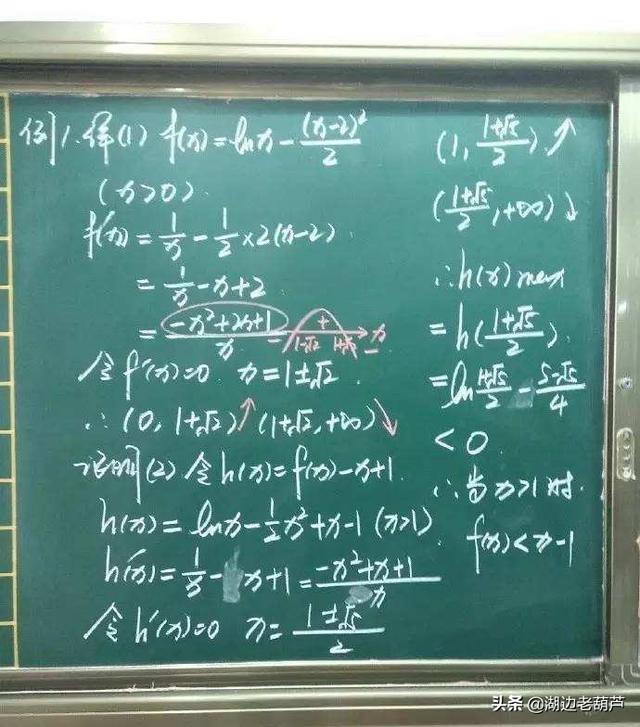 例1.解(1) f(x)=lnx-(x-2)²/2
(x>0).
f'(x)=1/x-1/2×2(x-2)
=1/x-x+2
=(-x²+2x+1)/x
- + -
1-√2 1+√2 x
令f'(x)=0 x=1±√2
∴(0,1+√2)↑(1+√2,+∞)↓
证明(2)令h(x)=f(x)-x+1
h(x)=lnx-1/2x²+x-1 (x>1)
h'(x)=1/x-x+1=(-x²+x+1)/x
令h'(x)=0 x=(1±√5)/2
(1,(1+√5)/2)↑
((1+√5)/2,+∞)↓
∴h(x)max
=h((1+√5)/2)
=ln(1+√5)/2-(5-√5)/4
<0
∴当x>1时.
f(x)<x-1
头条@湖边老葫芦